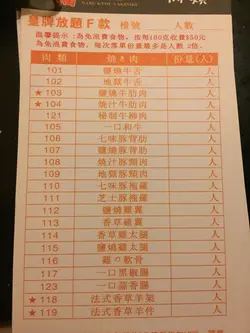 皇牌放題F款 檯號 人數
溫馨提示:為免浪費食物,按每100克收費$50元
為免浪費食物,每次落單份量最多是人數2倍。
肉類 燒き肉 份量(人)
101 鹽燒牛舌 人
102 地獄牛舌 人
★103 鹽燒牛肋肉 人
★104 燒汁牛肋肉 人
121 秘制牛柳肉 人
105 一口和牛 人
106 七味豚背肋 人
107 鹽燒豚背肋 人
108 燒汁豚頸肉 人
109 地獄豚頸肉 人
110 七味豚袍蘿 人
111 芝士豚袍蘿 人
112 鹽燒雞翼 人
113 香草雞翼 人
114 香草雞太腿 人
115 鹽燒雞太腿 人
116 雞の軟骨 人
117 一口黑椒腸 人
123 一口蒜香腸 人
★118 法式香草羊架 人
★119 法式香草羊件 人